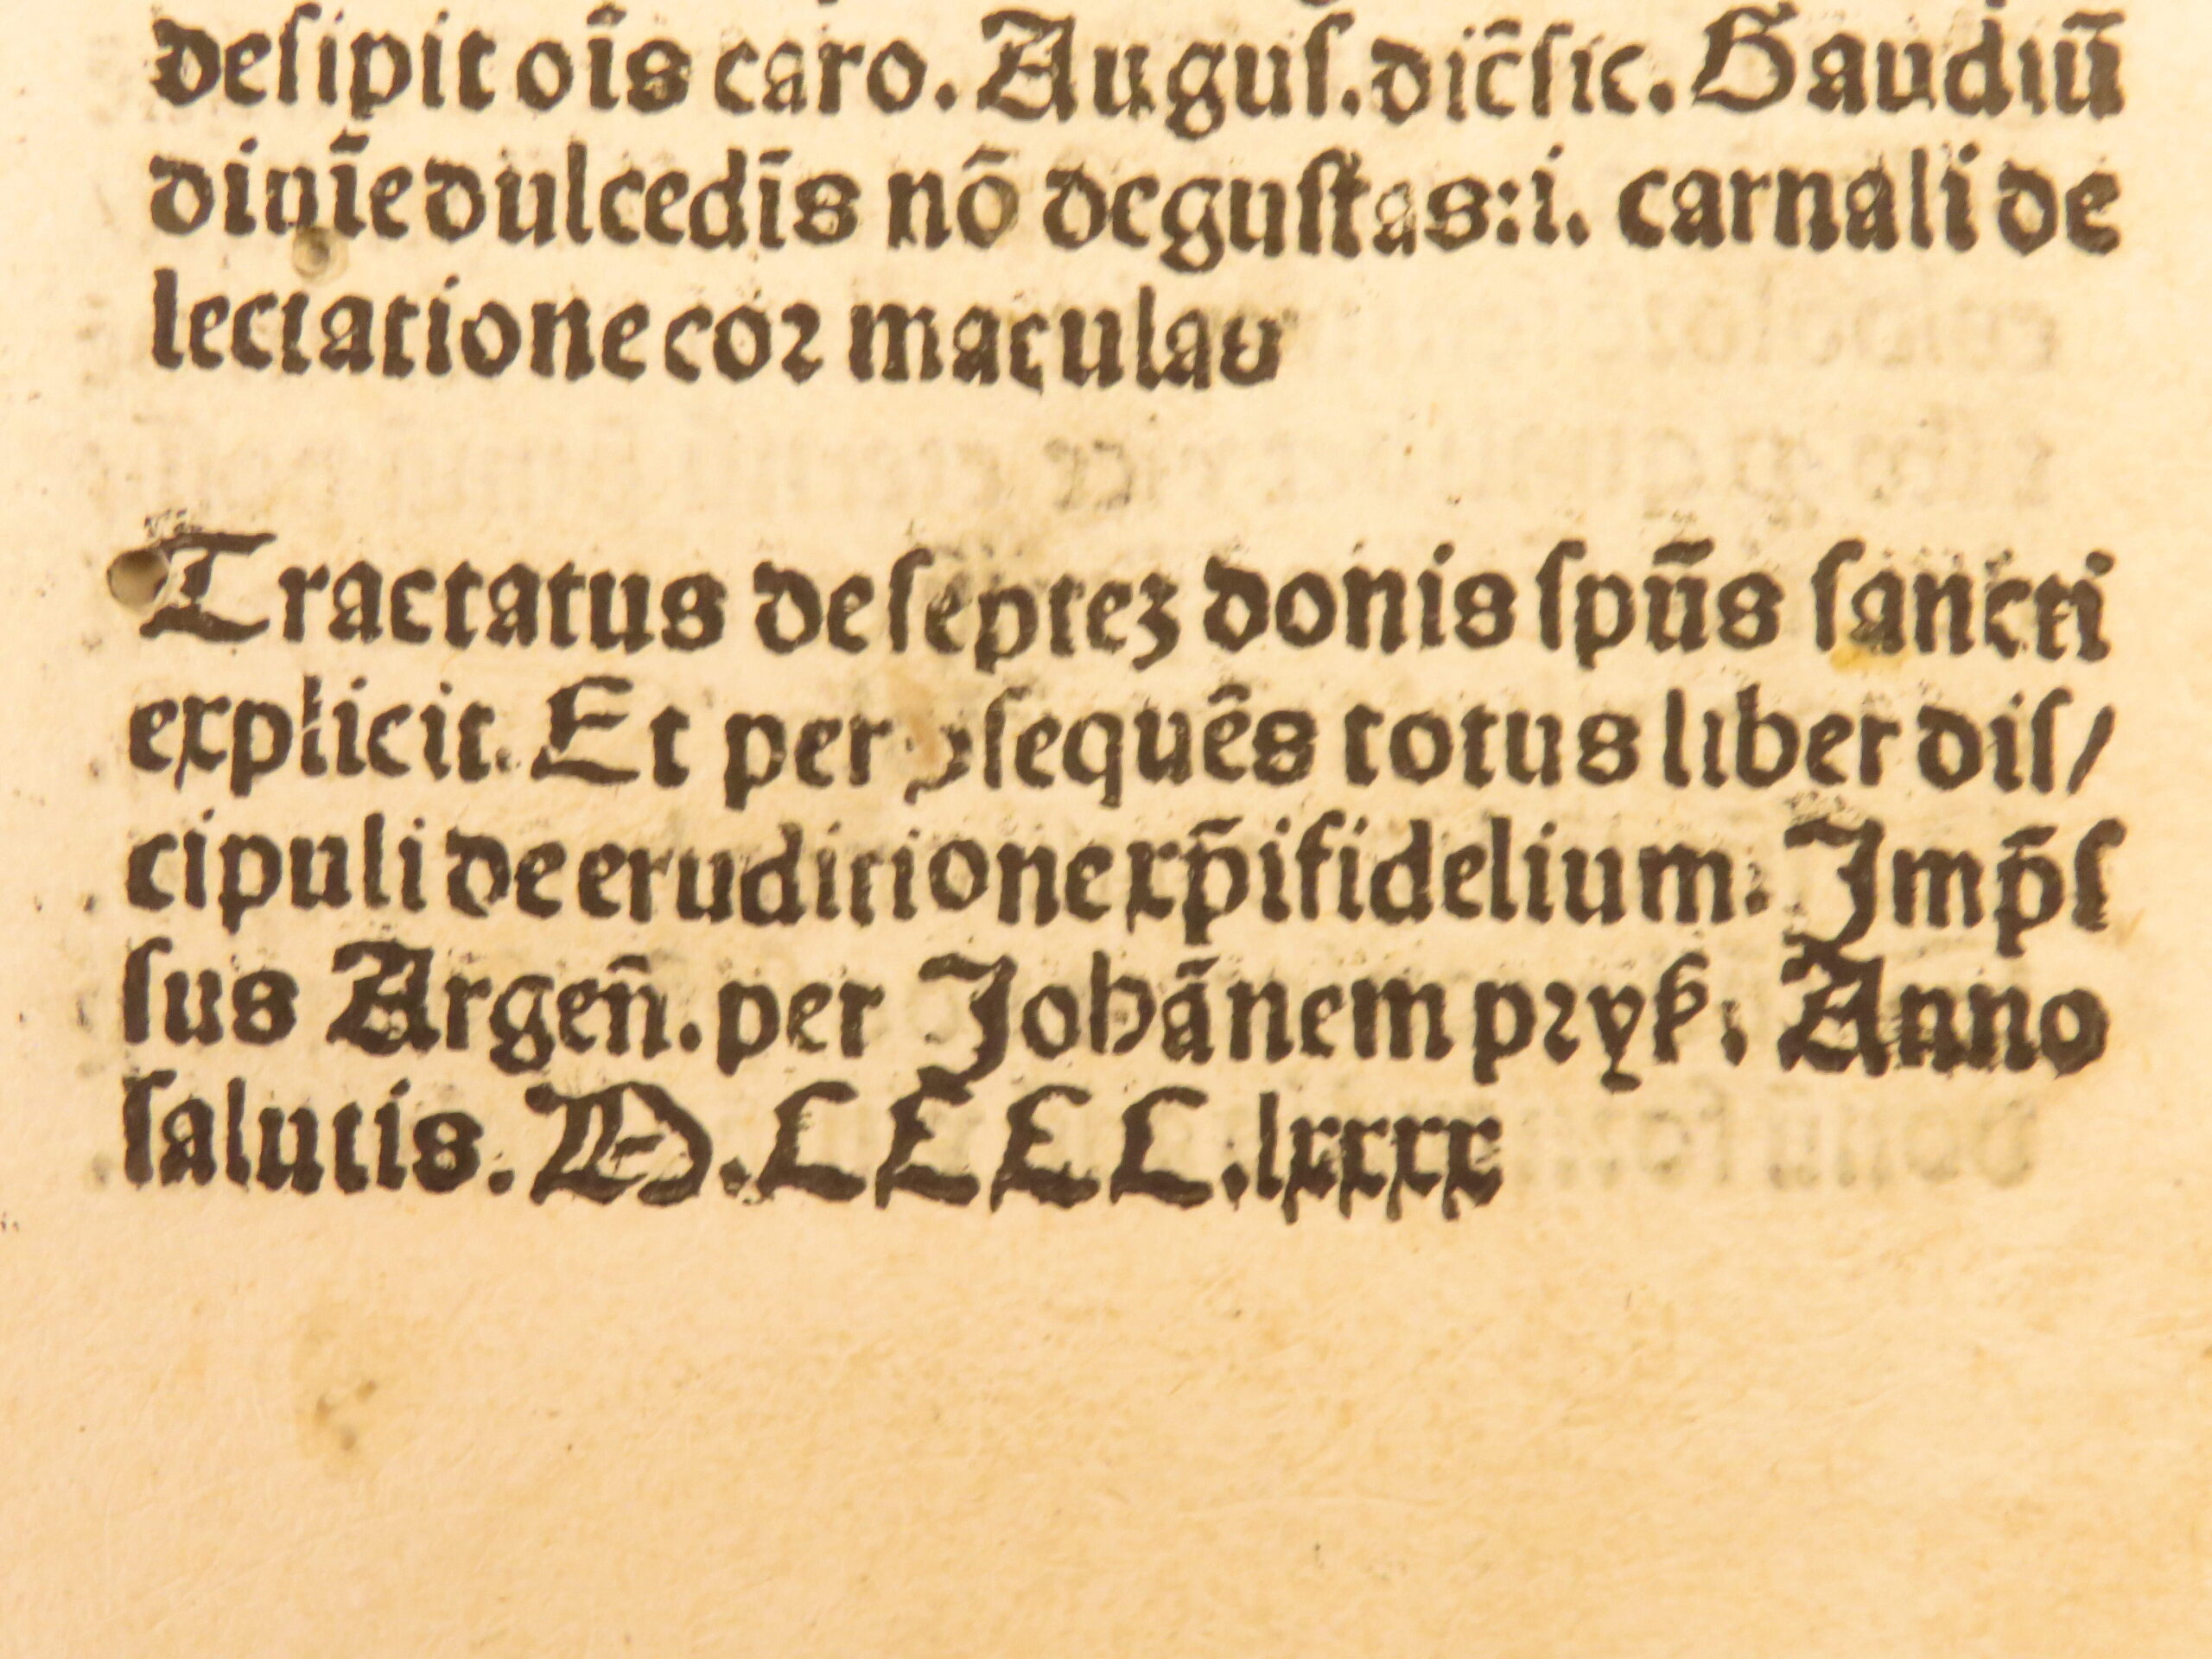 deſipit oīs caro. Auguſ. dic̄ ſic. Gaudiū
diuīe dulcedīs nō deguſtas: i. carnali de
lectatione coꝛ maculaꝰ
Tractatus de ſepteꝫ donis ſpūs ſancti
explicit. Et per ꝯſequēs totus liber diſ/
cipuli de eruditione xp̄ifidelium. Imp̄ſ
ſus Argeñ. per Johānem pꝛyß. Anno
ſalutis. M.CCCC.lxxxx